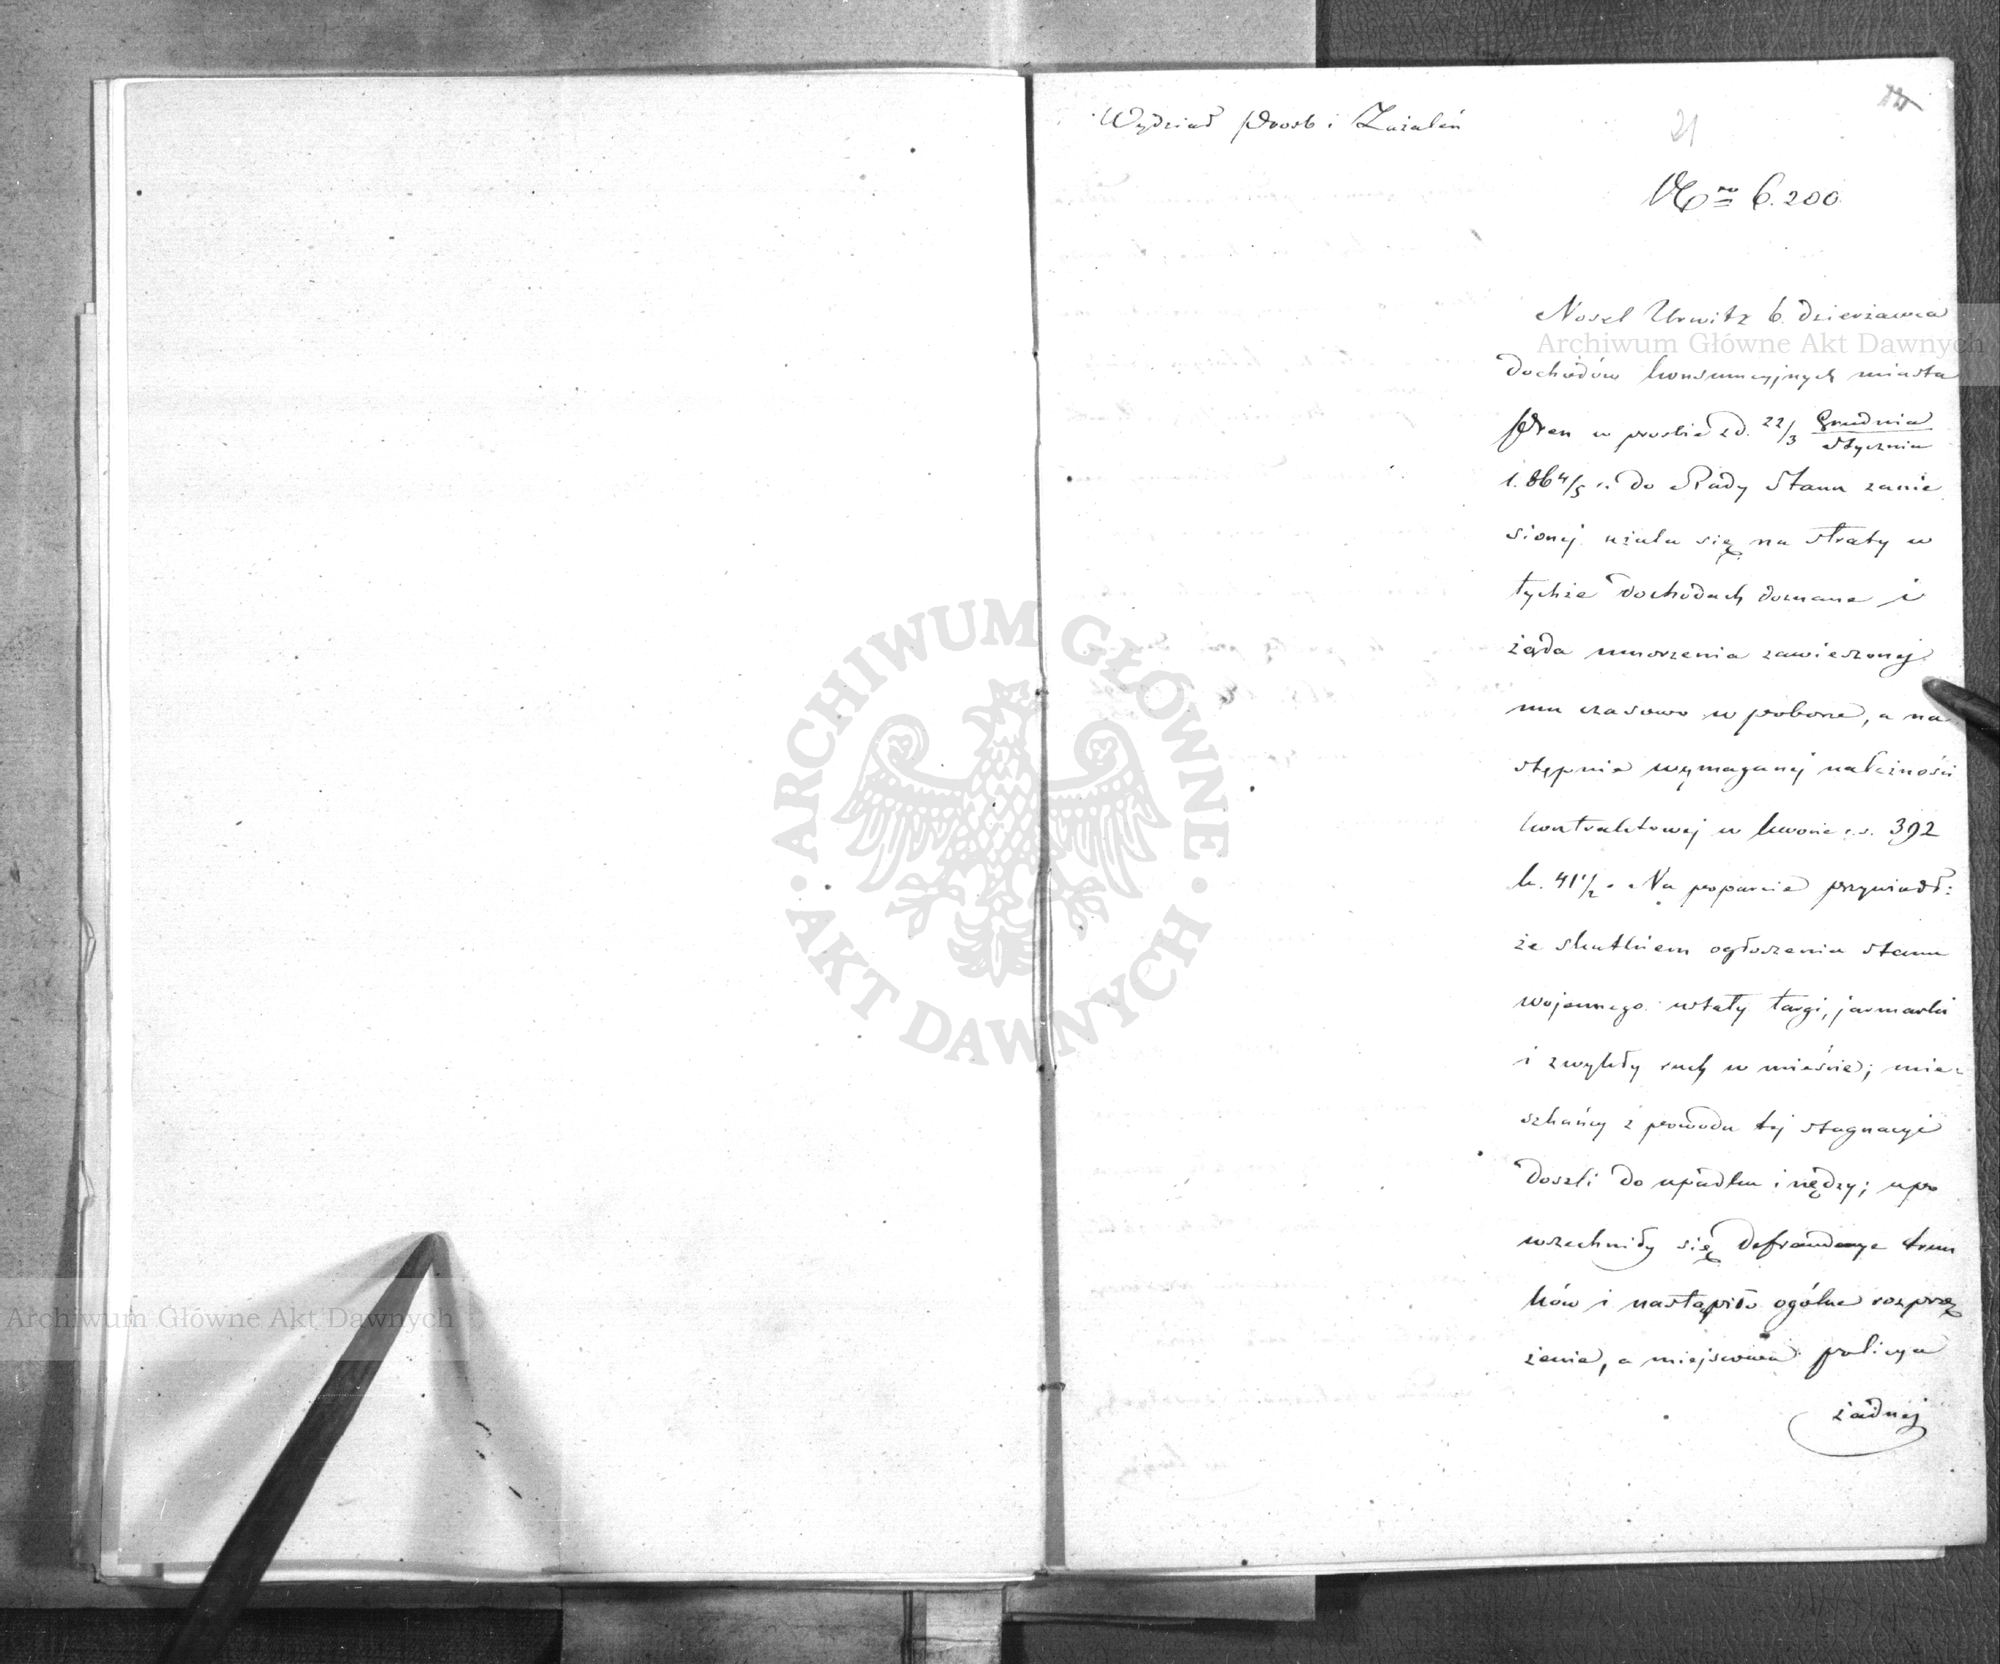 Wydział Prośb i Zażaleń
21
12
Nro 6.200
Nosel Urwitz b. dzierżawca
dochodów konsumcyjnych miasta
Pren w prośbie z d. 22/3 Grudnia/Stycznia
1.864/5 r. do Rady Stanu zanie
sionej użala się na straty w
tychże dochodach doznane i
żąda umorzenia zawieszonej
mu czasowo w poborze, a na
stępnie wymaganej należności
kontraktowej w kwocie r.s. 392
k. 41 1/2. Na poparcie przywiódł:
że skutkiem ogłoszenia stanu
wojennego ustały targi, jarmarki
i zwykły ruch w mieście; mie-
szkańcy z powodu tej stagnacyi
doszli do upadku i nędzy; upo
wszechniły się defraudacye trun
ków i nastąpiło ogólne rozprzę
żenie, a miejscowa policya
żadnej
ARCHIWUM GŁÓWNE AKT DAWNYCH
Archiwum Główne Akt Dawnych
Archiwum Główne Akt Dawnych